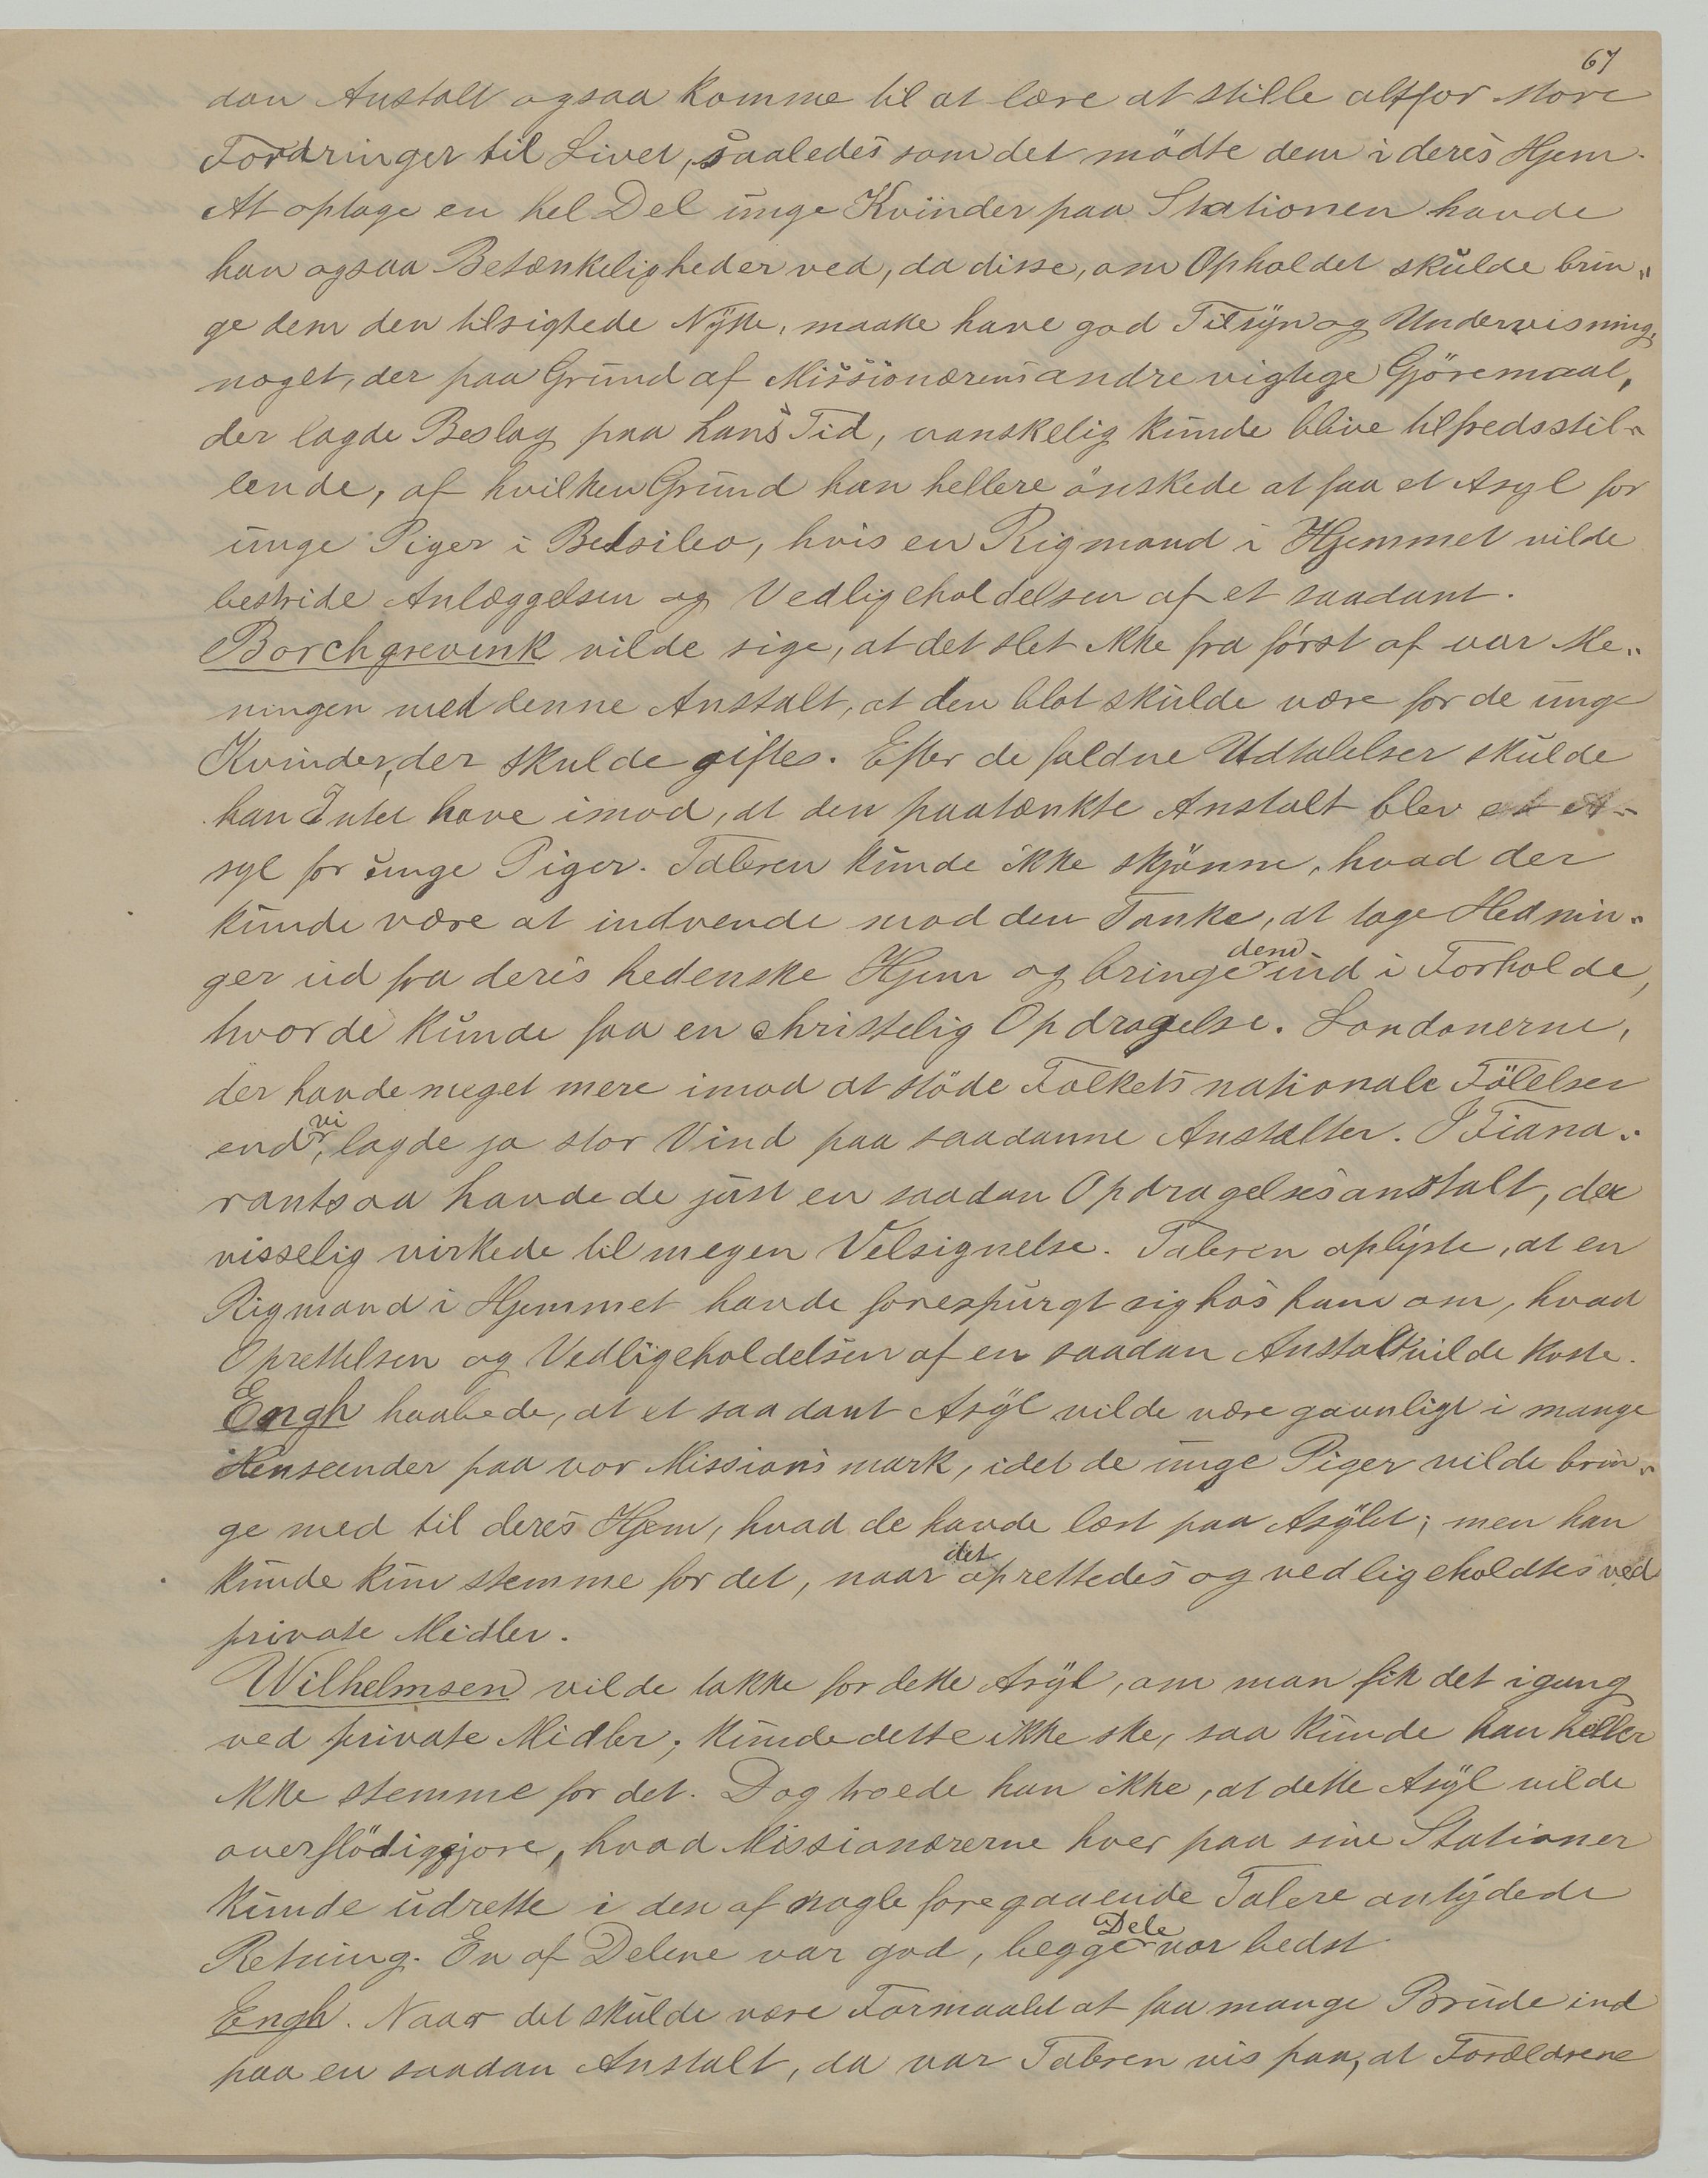 67
dan Anstalt ogsaa komme til at lære at stille altfor store
Fordringer til Livet, saaledes som det mödte dem i deres Hjem.
At optage en hel Del unge Kvinder paa Stationen havde
han ogsaa Betænkeligheder ved, da disse, om Opholdet skulde brin„
ge dem den tilsigtede Nytte, maatte have god Tilsyn og Undervisning,
noget, der paa Grund af Missionærens andre vigtige Gjöremaal,
der lagde Beslag paa hans Tid, vanskelig kunde blive tilfredsstil„
lende, af hvilken Grund han hellere önskede at faa et Asyl for
unge Piger i Betsileo, hvis en Rigmand i Hjemmet vilde
bestride Anlæggelsen og Vedligeholdelsen af et saadant.
Borchgrevink vilde sige, at det slet ikke fra först af var Me„
ningen med denne Anstalt, at den blot skulde være for de unge
Kvinder, der skulde giftes. Efter de faldne Udtalelser skulde
han Intet have imod, at den paatænkte Anstalt blev et A„
syl for unge Piger. Taleren kunde ikke skjönne, hvad der
kunde være at indvende mod den Tanke, at tage Hednin„
ger ud fra deres hedenske Hjem og bringe dem ind i Forholde,
hvor de kunde faa en christelig Opdragelse. Londonerne,
der havde meget mere imod at stöde Folkets nationale Fölelser
end vi, lagde jo stor Vind paa saadanne Anstalter. I Fiana„
rantsoa havde de just en saadan Opdragelsesanstalt, der
visselig virkede til megen Velsignelse. Taleren oplyste, at en
Rigmand i Hjemmet havde forespurgt sig hos ham om, hvad
Oprettelsen og Vedligeholdelsen af en saadan Anstalt vilde koste.
Engh haabede, at et saadant Asyl vilde være gavnligt i mange
Henseender paa vor Missionsmark, idet de unge Piger vilde brin„
ge med til deres Hjem, hvad de havde lært paa Asylet; men han
kunde kun stemme for det, naar det oprettedes og vedligeholdtes ved
private Midler.
Wilhelmsen vilde takke for dette Asyl, om man fik det igang
ved private Midler; kunde dette ikke ske, saa kunde han heller
ikke stemme for det. Dog troede han ikke, at dette Asyl vilde
overflödiggjore, hvad Missionærerne hver paa sine Stationer
kunde udrette i den af nogle foregaaende Talere antydede
Retning. En af Delene var god, begge Dele var bedst
Engh. Naar det skulde være Formaalet at faa mange Brude ind
paa en saadan Anstalt, da var Taleren vis paa, at Forældrene